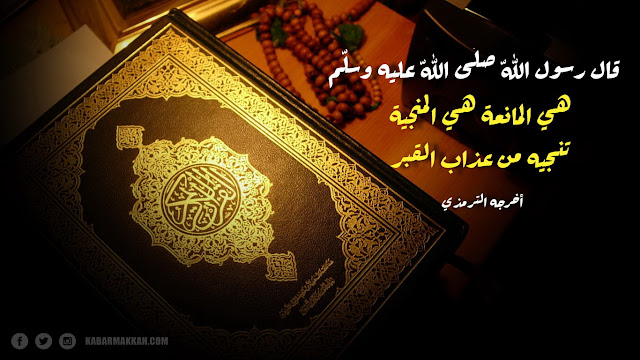 قال رسول اللهّ صلّى اللهّ عليه وسلّم
هي المانعة هي المنجية
تنجيه من عذاب القبر
أخرجه الترمذي
القرآن الكريم
KABARMAKKAH.COM